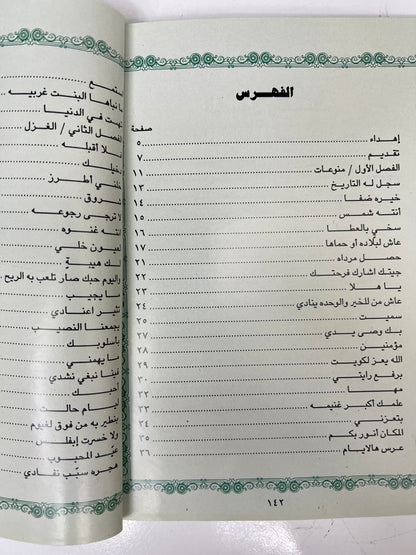 الفهرس
صفحة
إهداء ٥
تقديم ٧
الفصل الأول/ منوعات ١١
سجل له التاريخ ١٣
خيره ضفا ١٤
أنته شمس ١٥
سخي بالعطا ١٦
عاش لبلاده أو حماها ١٧
حصل مرداه ٢١
جيتك اشارك فرحتك ٢٢
يا هلا ٢٣
عاش من للخير والوحده ينادي ٢٤
سميت
بك وصى يدي
مؤمنين
الله يعز لكويت
برفع رايتي ٣٠
مها ٣٢
علمك أكبر غنيمه ٣٣
بتعزني
المكان أنور بكم ٣٥
عرس هالايام ٣٦
١٤٢
نستمع
ما نباها البنت غربيه
تهت في الدنيا
الفصل الثاني/ الغزل
لا أقبله
خيالك
خلني أطرز
شروق
لا ترجى رجوعه
انته غنوه
لعيون خلي
لك هيبة
واليوم حبك صار تلعب به الريح
ما يجيب
تثير اعتادي
يجمعنا النصيب
بأسلوبك
ما يهمني
فينا نبغي نشدي
أحبك
أيام حالت
بنطير به من فوق لغيوم
ولا خسرت إبفلس
عيد المحبوب
هجره سبب نقادي